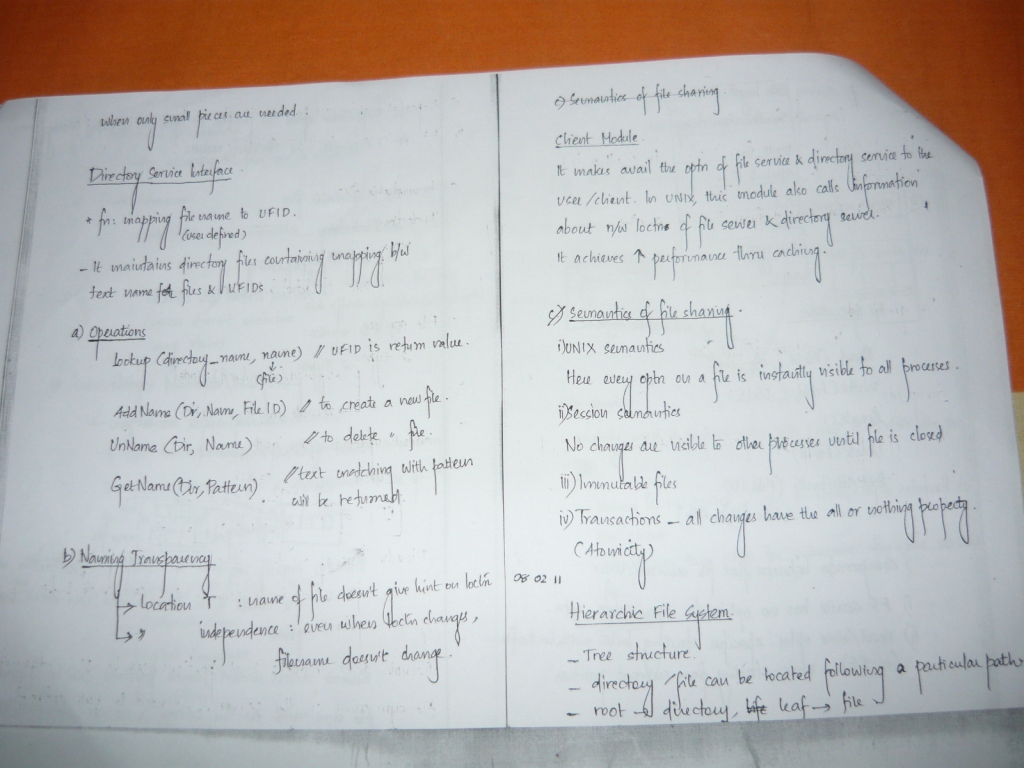 when only small pieces are needed.
Directory Service Interface.
* fn: mapping file name to UFID.
(user defined)
- It maintains directory files containing mapping b/w
text name for files & UFIDs
a) Operations
Lookup (directory_name, name) // UFID is return value.
(file)
AddName (Dir, Name, File ID) // to create a new file.
UnName (Dir, Name) // to delete " file.
GetName (Dir, Pattern) // text matching with pattern
will be returned
b) Naming Transparency
→ Location T : name of file doesn't give hint on loctn
→ " independence : even when loctn changes,
filename doesn't change.
c) Semantics of file sharing
Client Module
It makes avail the optn of file service & directory service to the
user/client. In UNIX, this module also calls information
about n/w loctns of file server & directory server.
It achieves ↑ performance thru caching.
c) Semantics of file sharing.
i) UNIX semantics
Here every optn on a file is instantly visible to all processes.
ii) Session semantics
No changes are visible to other processes until file is closed
iii) Immutable files
iv) Transactions - all changes have the all or nothing property.
(Atomicity)
08 02 11
Hierarchic File System.
- Tree structure.
- directory/file can be located following a particular path
- root → directory, leaf → file